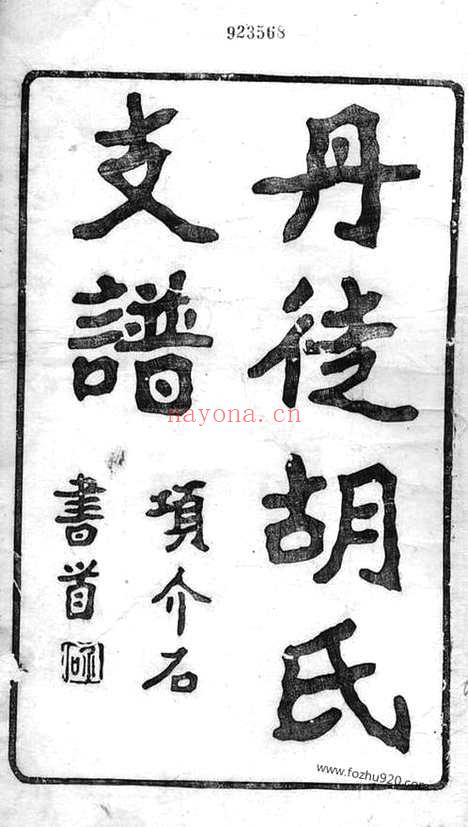 923568
丹徒胡氏
支譜
項介石
書首
nayona.cn
www.fozhu920.com